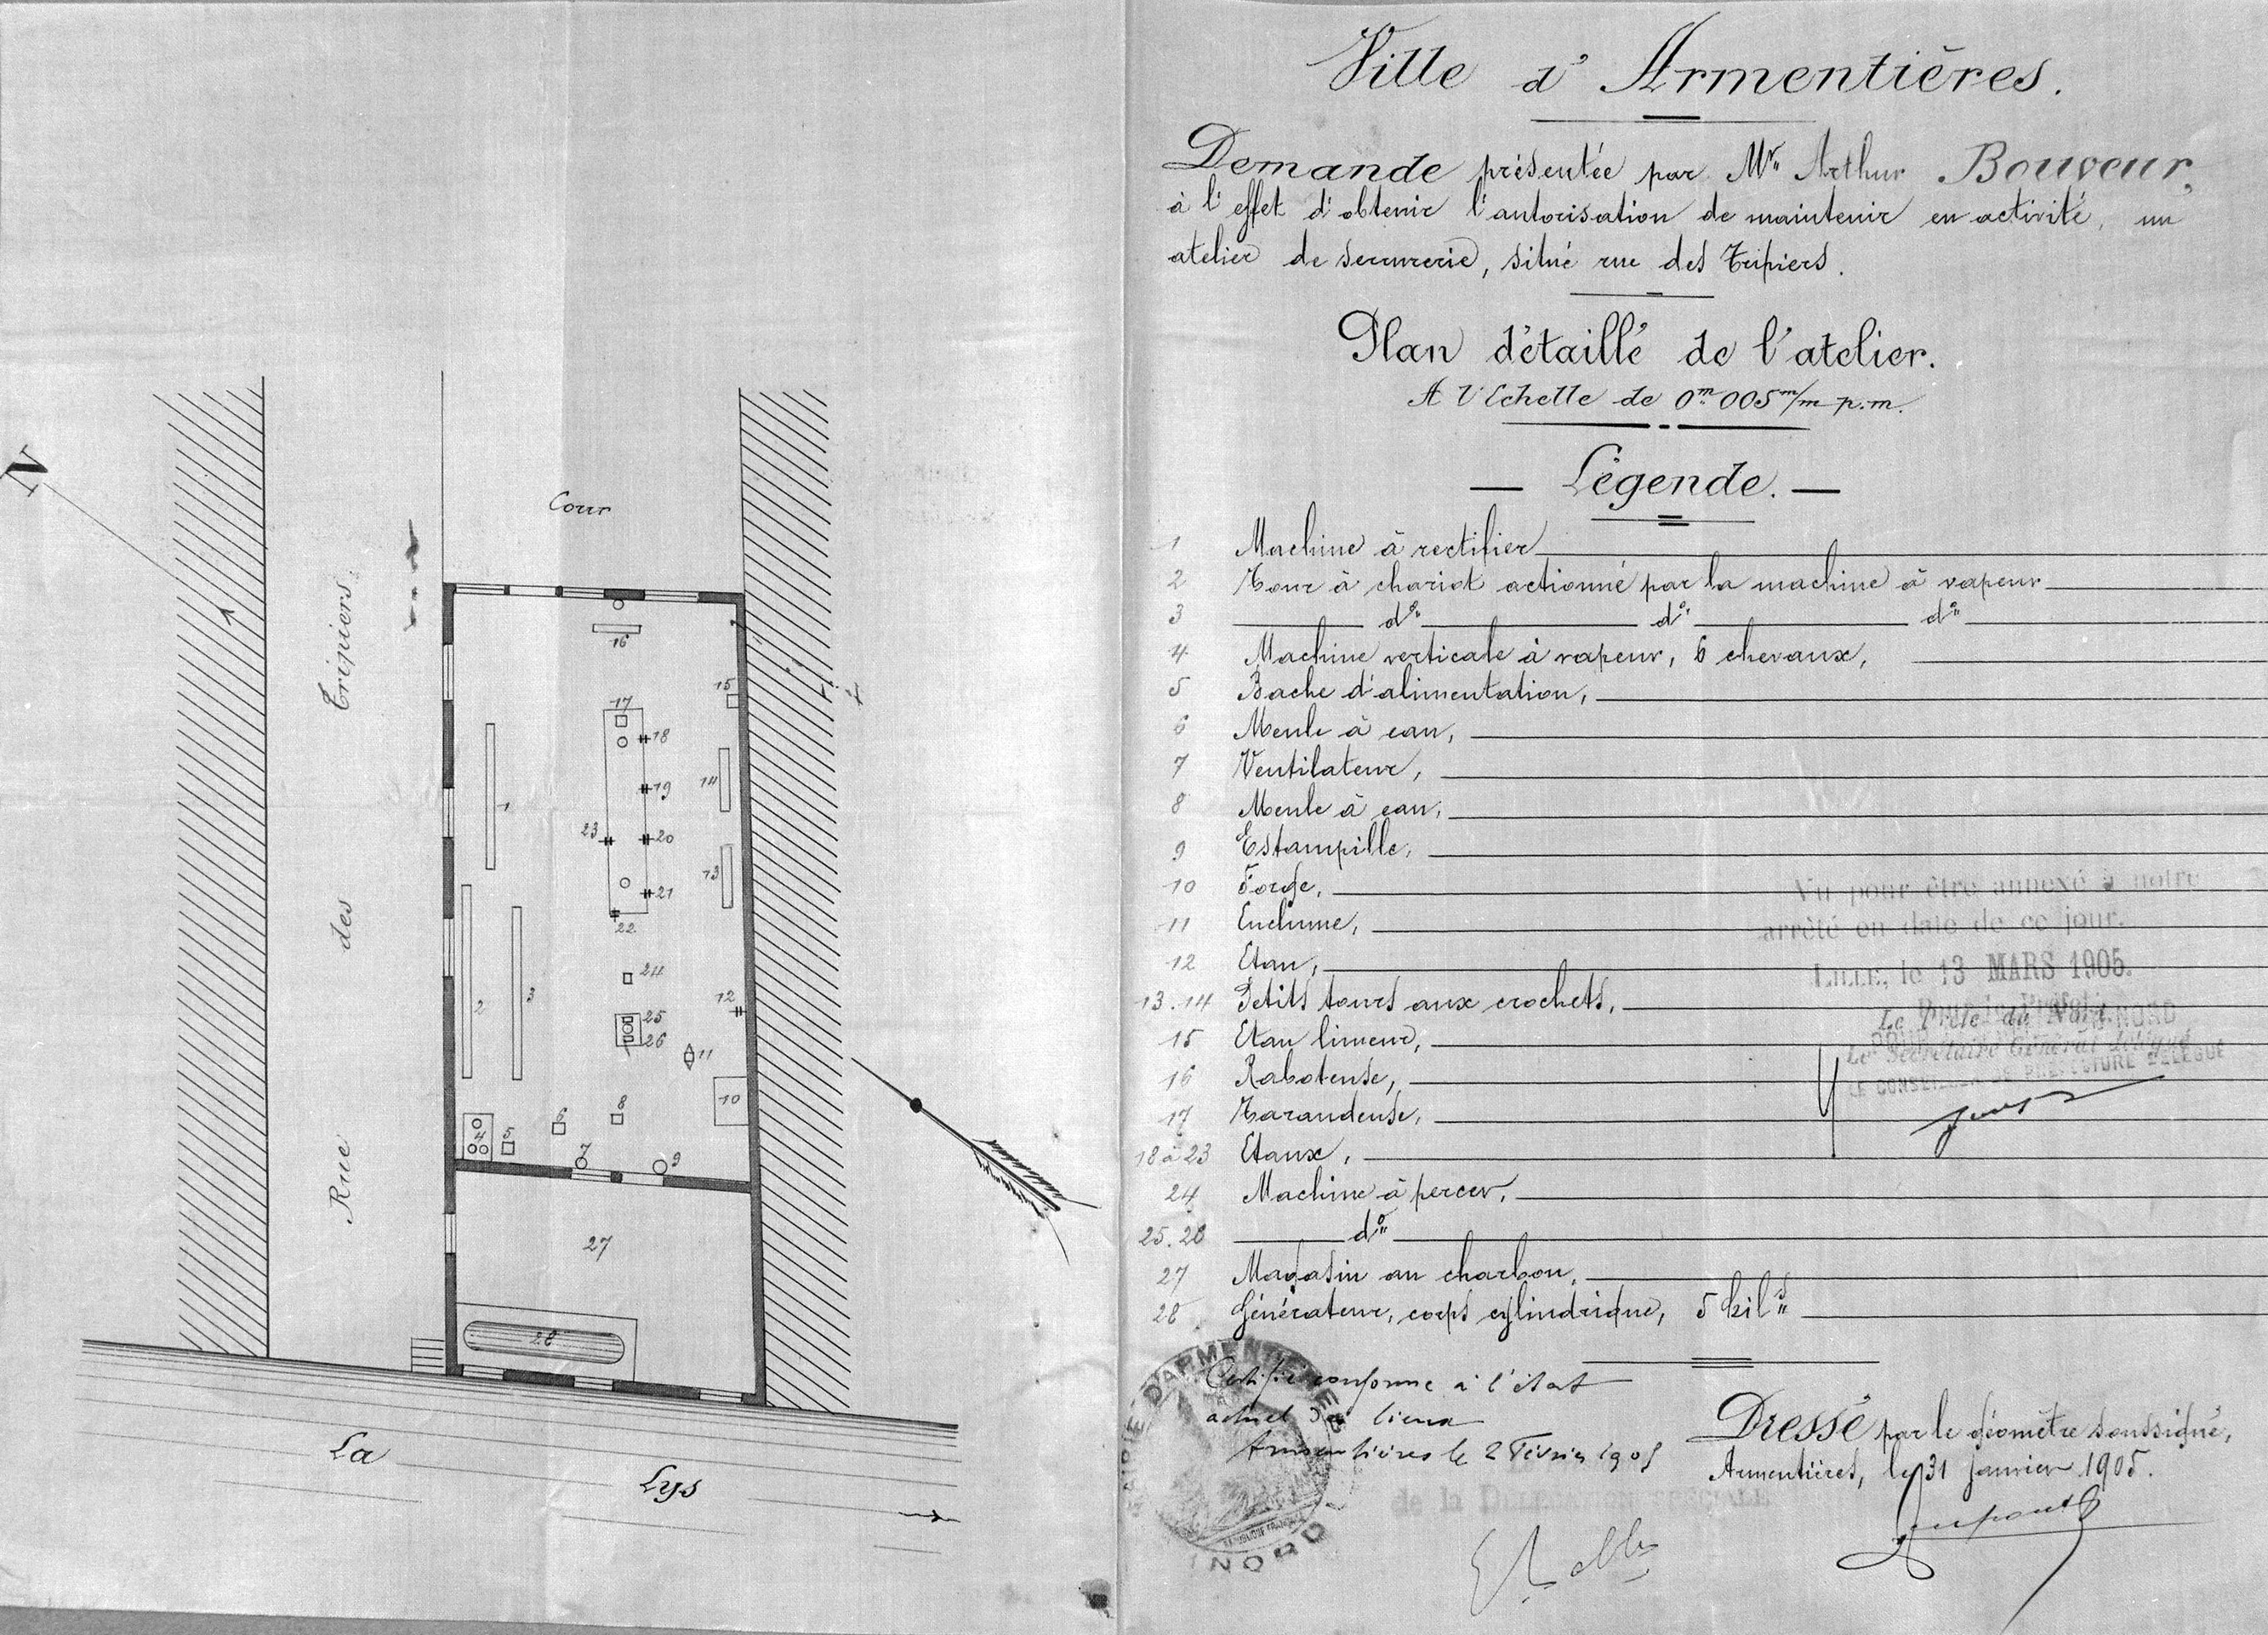 N
Cour
Rue des Tripiers.
16
15
17
18
14
1
19
23
20
13
21
22
2
3
24
12
25
26
11
10
4
5
6
8
7
9
27
28
La Lys
Ville d'Armentières.
Demande présentée par Mr. Arthur Bouveur,
à l'effet d'obtenir l'autorisation de maintenir en activité, un
atelier de serrurerie, situé rue des Tripiers.
Plan détaillé de l'atelier.
A l'Echelle de 0m.005 m/m p.m.
— Légende. —
1 Machine à rectifier
2 Tour à chariot actionné par la machine à vapeur
3 do do do
4 Machine verticale à vapeur, 6 chevaux,
5 Bache d'alimentation,
6 Meule à eau,
7 Ventilateur,
8 Meule à eau,
9 Estampille,
10 Forge,
11 Enclume,
12 Etau,
13.14 Petits tours aux crochets,
15 Etau limeur,
16 Raboteuse,
17 Taraudeuse,
18 à 23 Etaux,
24 Machine à percer,
25.26 do
27 Magasin au charbon,
28 Générateur, corps cylindrique, 5 kils
Vu pour être annexé à notre
arrêté en date de ce jour.
LILLE, le 13 MARS 1905.
Le Secrétaire Général délégué
LE CONSEILLER DE PRÉFECTURE DÉLÉGUÉ
Certifié conforme à l'état
actuel des lieux
Armentières le 2 Février 1905
MAIRIE D'ARMENTIÈRES
NORD
de la DÉLÉGATION SPÉCIALE
Dressé par le géomètre soussigné,
Armentières, le 31 Janvier 1905.